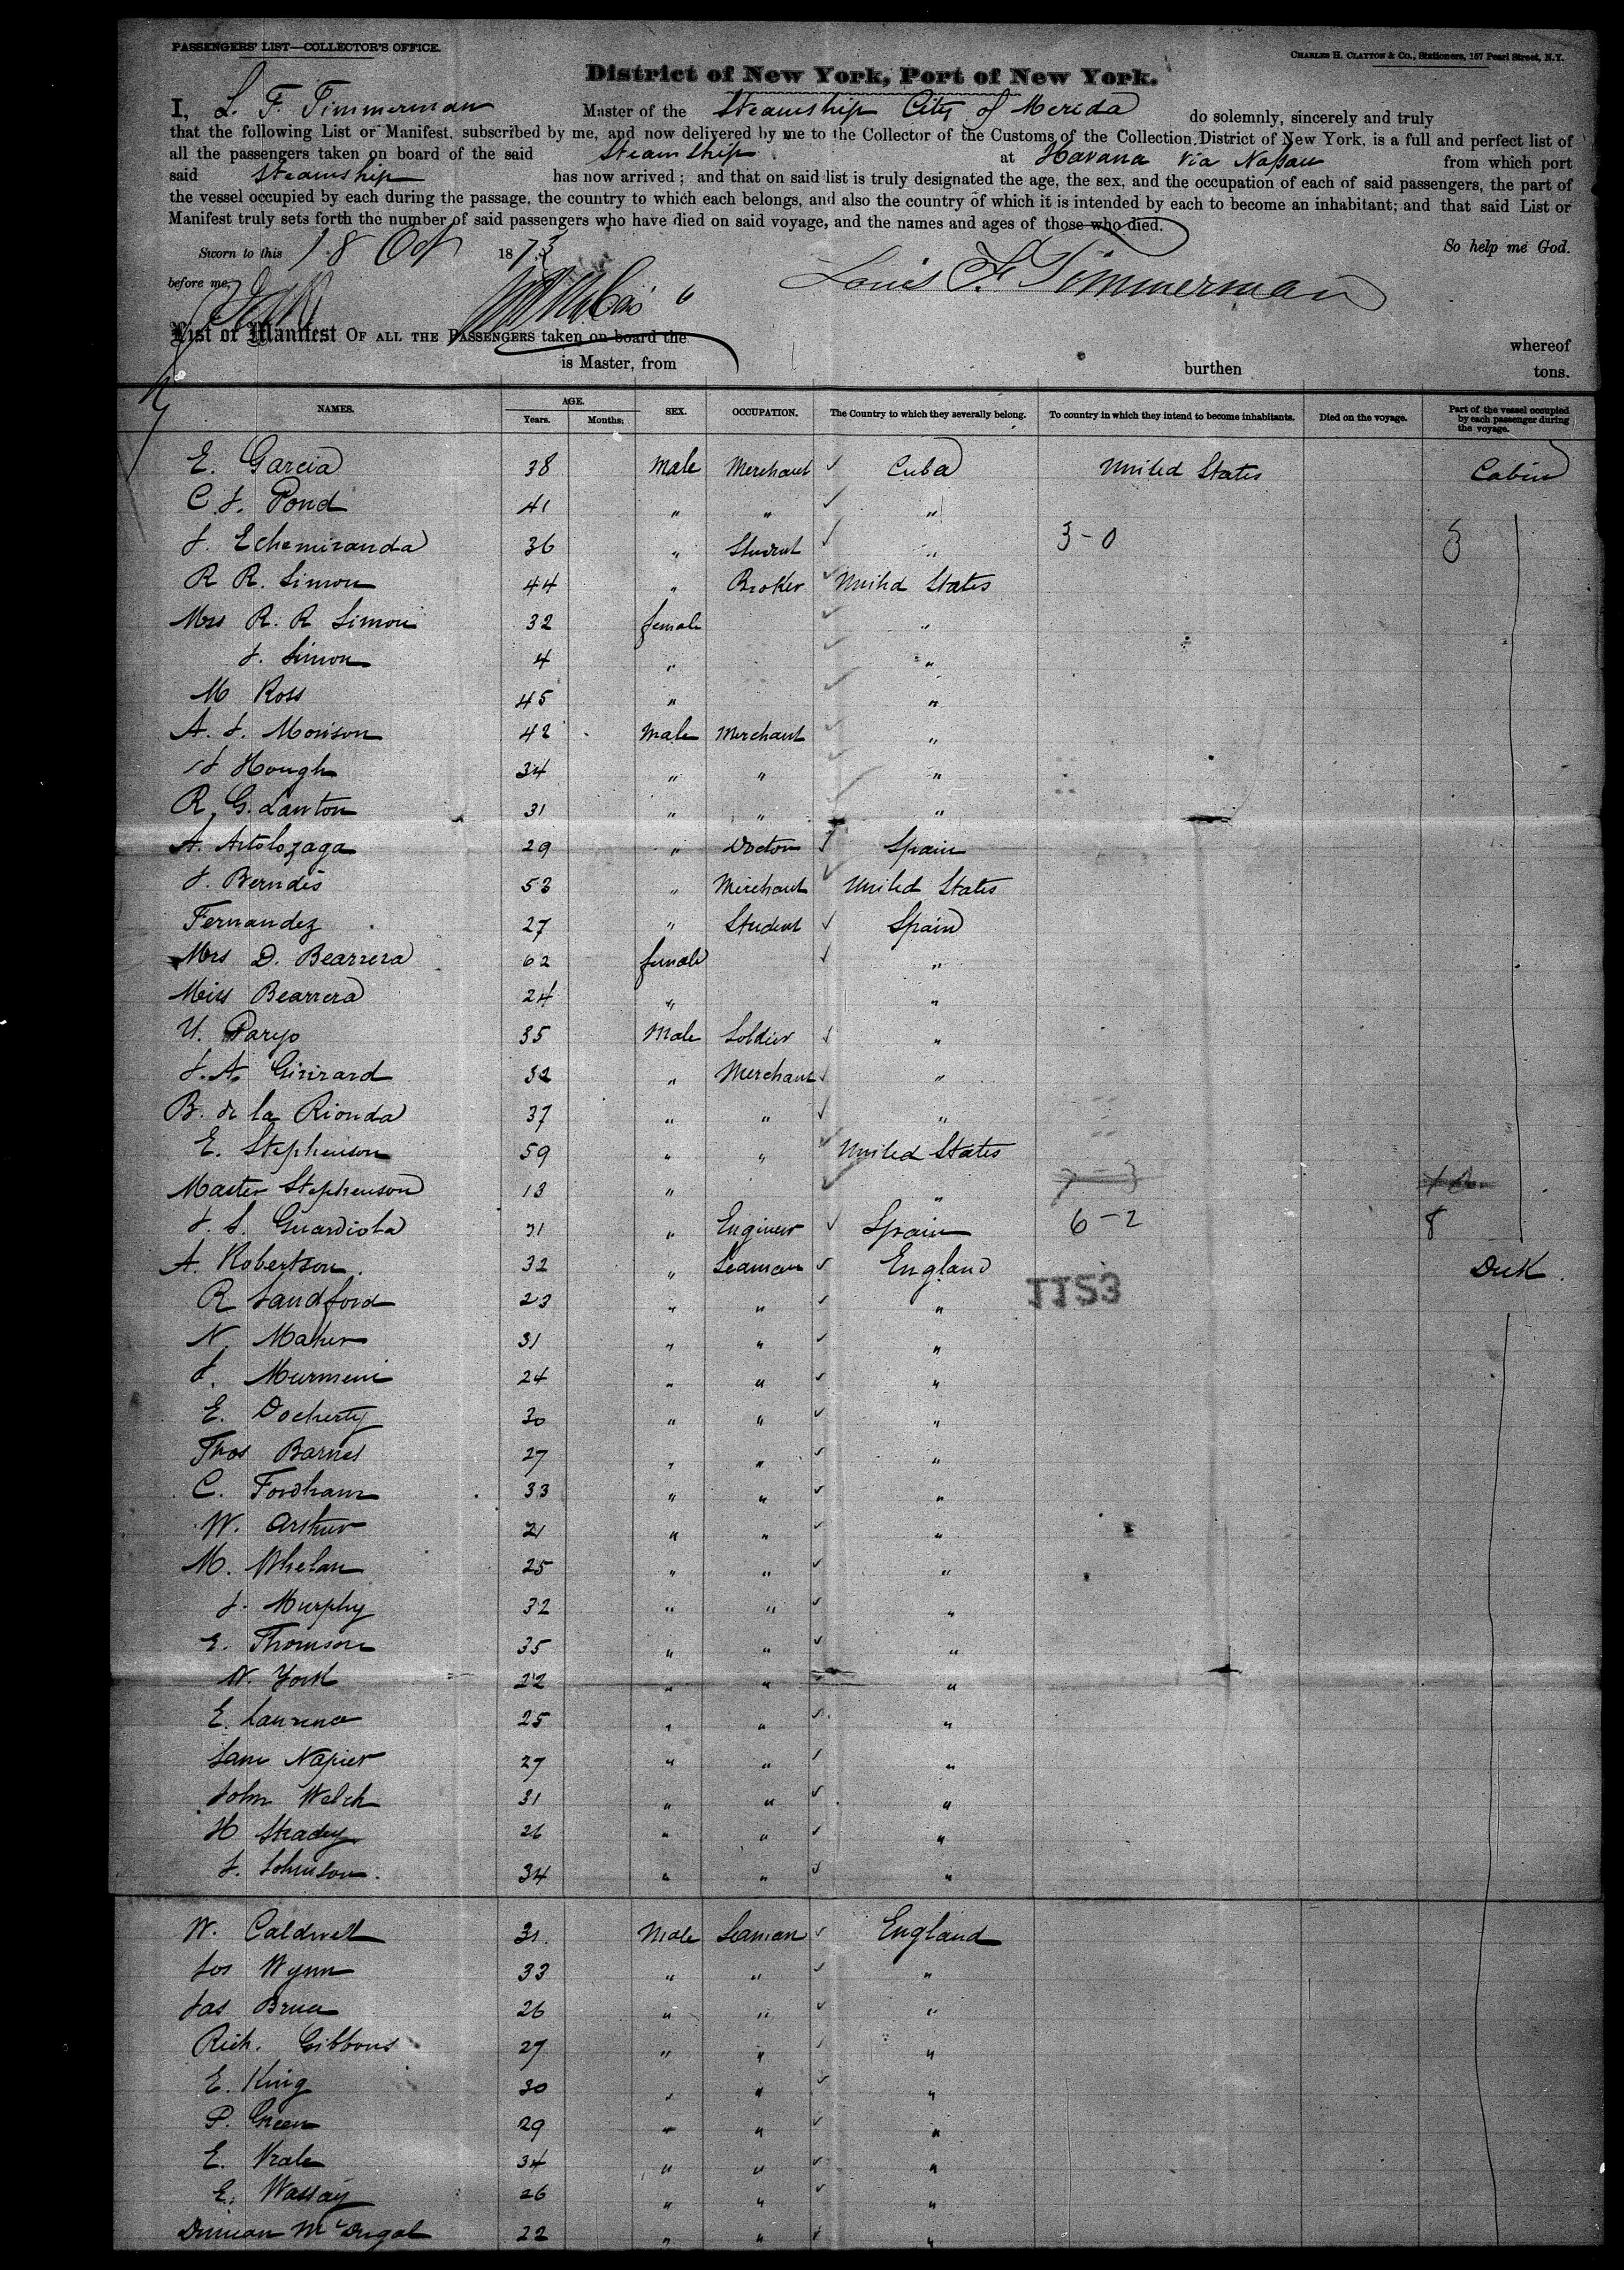 PASSENGERS' LIST—COLLECTOR'S OFFICE.
CHARLES H. CLAYTON & CO., Stationers, 157 Pearl Street, N.Y.
District of New York, Port of New York.
I, L. F. Timmerman Master of the Steamship City of Merida do solemnly, sincerely and truly
that the following List or Manifest, subscribed by me, and now delivered by me to the Collector of the Customs of the Collection District of New York, is a full and perfect list of
all the passengers taken on board of the said Steamship at Havana via Nassau from which port
said Steamship has now arrived; and that on said list is truly designated the age, the sex, and the occupation of each of said passengers, the part of
the vessel occupied by each during the passage, the country to which each belongs, and also the country of which it is intended by each to become an inhabitant; and that said List or
Manifest truly sets forth the number of said passengers who have died on said voyage, and the names and ages of those who died.
Sworn to this 18 Oct 1873 So help me God.
before me, Louis F. Timmerman
List or Manifest OF ALL THE PASSENGERS taken on board the whereof
is Master, from burthen tons.
NAMES. AGE. Years. Months. SEX. OCCUPATION. The Country to which they severally belong. To country in which they intend to become inhabitants. Died on the voyage. Part of the vessel occupied by each passenger during the voyage.
E. Garcia 38 Male Merchant Cuba United States Cabin
C. J. Pond 41 " " "
J. Echemiranda 36 " Student " 3-0 3
R R. Simon 44 " Broker United States
Mrs R. R Simon 32 female "
J. Simon 4 " "
M Ross 45 " "
A. J. Morison 42 Male Merchant "
J Hough 34 " " "
R. G. Lawton 31 " " "
A. Artolozaga 29 " Doctor Spain
J. Berndes 53 " Merchant United States
Fernandez 27 " Student Spain
Mrs D. Bearrera 62 female "
Miss Bearrera 24 " "
U. Paryo 35 Male Soldier "
J. A. Girirard 32 " Merchant "
B. de la Rionda 37 " " "
E. Stephenson 59 " " United States
Master Stephenson 13 " " 7-3
J. S. Guardiola 31 " Engineer Spain 6-2 8
A. Robertson 32 " Seaman England Deck
1153
R Sandford 23 " " "
N. Maher 31 " " "
J. 24 " " "
E. Docherty 30 " " "
Thos Barnes 27 " " "
C. Fordham 33 " " "
W. Arthur 21 " " "
M. Whelan 25 " " "
J. Murphy 32 " " "
E. Thomson 35 " " "
W. York 22 " " "
E. Laurence 25 " " "
Sam Napier 27 " " "
John Welch 31 " " "
H Steady 26 " " "
J. Johnson 34 " " "
W. Caldwell 31 Male Seaman England
Jos Wynn 33 " " "
Jas Bruce 26 " " "
Rich. Gibbons 27 " " "
E. King 30 " " "
P. Green 29 " " "
E. 34 " " "
E. Wassay 26 " " "
Duncan McDugal 22 " " "